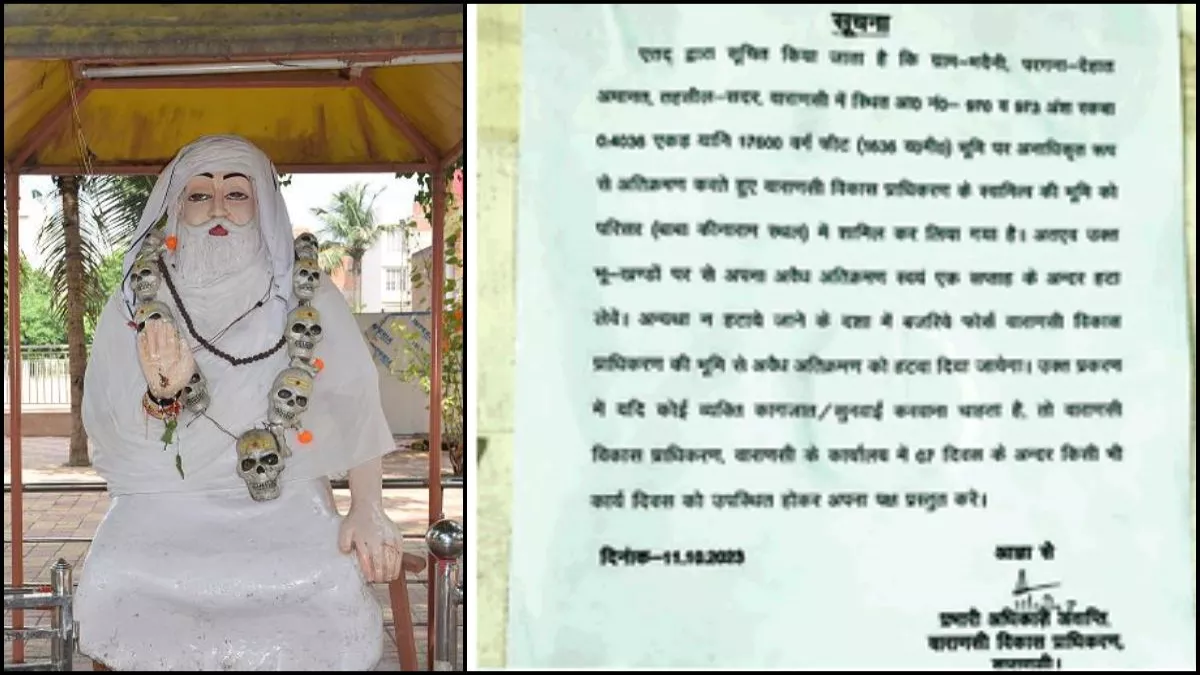 सूचना
एतद् द्वारा सूचित किया जाता है कि ग्राम–भदैनी, परगना–देहात
अमानत, तहसील–सदर, वाराणसी में स्थित आ0 नं0– 970 व 973 अंश रकबा
0.4036 एकड़ यानि 17600 वर्ग फीट (1636 व0मी0) भूमि पर अनाधिकृत रूप
से अतिक्रमण करते हुए वाराणसी विकास प्राधिकरण के स्वामित्व की भूमि को
परिसर (बाबा कीनाराम स्थल) में शामिल कर लिया गया है। अतएव उक्त
भू–खण्डों पर से अपना अवैध अतिक्रमण स्वयं एक सप्ताह के अन्दर हटा
लेवें। अन्यथा न हटाये जाने के दशा में बजरिये फोर्स वाराणसी विकास
प्राधिकरण की भूमि से अवैध अतिक्रमण को हटवा दिया जायेगा। उक्त प्रकरण
में यदि कोई व्यक्ति कागजात/सुनवाई करवाना चाहता है, तो वाराणसी
विकास प्राधिकरण, वाराणसी के कार्यालय में 07 दिवस के अन्दर किसी भी
कार्य दिवस को उपस्थित होकर अपना पक्ष प्रस्तुत करे।
दिनांक–11.10.2023
आज्ञा से
प्रभारी अधिकारी
वाराणसी विकास प्राधिकरण,
वाराणसी।